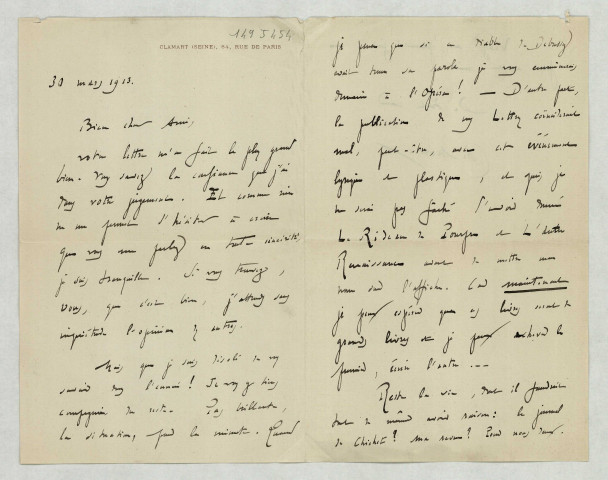 1495454
CLAMART (SEINE), 84, RUE DE PARIS
30 mars 1913.
Bien cher Ami,
votre lettre m'a fait le plus grand
bien. Vous savez la confiance que j'ai
dans votre jugement. Et comme rien
ne me permet d'hésiter à croire
que vous me parlez en toute sincérité,
je suis tranquille. Si vous trouvez,
vous, que c'est bien, j'attends sans
inquiétude l'opinion d'autres.
Mais que je suis désolé de vous
savoir dans l'ennui! Je vous y tiens
compagnie du reste. Pas brillante,
la situation, pour la minute. Quand
je pense que si ce diable de Debussy
avait tenu sa parole je vous emmènerais
demain à l'Opéra! — D'autre part,
la publication de mes Lettres coïnciderait
mal, peut-être, avec cet événement
lyrique et plastique, et puis, je
ne serai pas fâché d'avoir donné
Le Rideau de Pourpre et l'autre
Renaissance avant de mettre mon
nom sur l'affiche. Car maintenant
je peux espérer que ces livres seront de
grands livres et je peux achever le
premier, écrire l'autre ...
Reste la vie, dont il faudrait
tout de même avoir raison: le journal
de Chichet? ma revue? Pour nous deux.